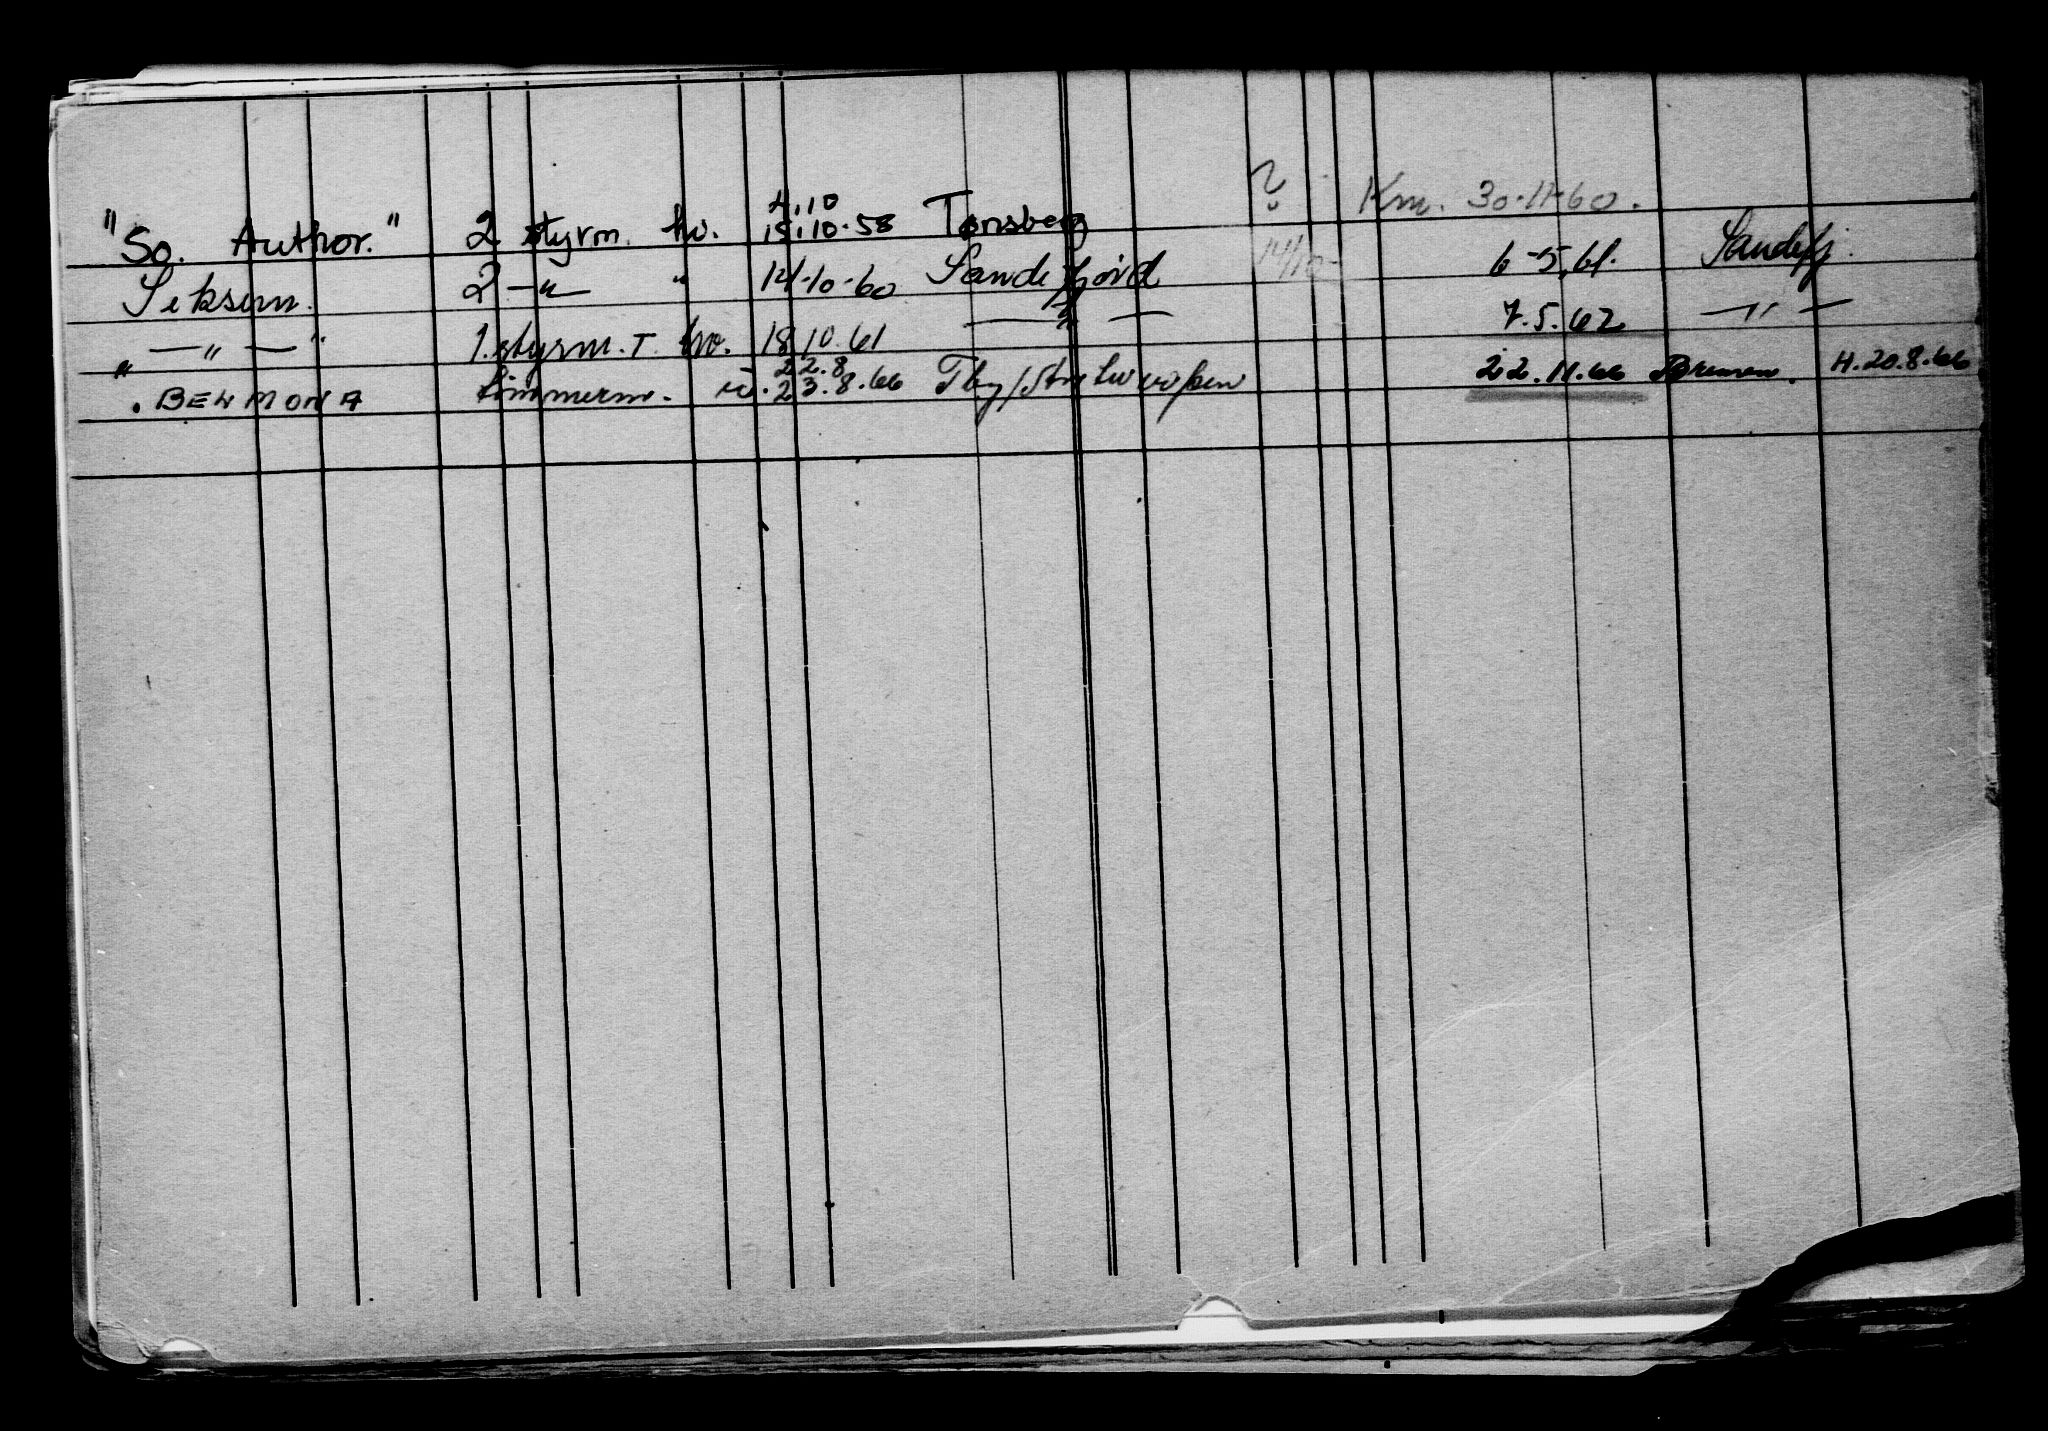 ? Km. 30-11-60.
4.10
"So. Author." 2 styrm. hv. 15.10.58 Tønsberg
Seksern. 2 —"— " 14-10-60 Sandefjord 14/10- 6-5.61. Sandefj.
" —"— " 1. styrm. T. hv. 18.10.61 —"— 7.5.62 —"—
22.8
. BEWMONA tømmerm. 23.8.66 Tbg/ 22.11.66 Bremen. H.20.8.66